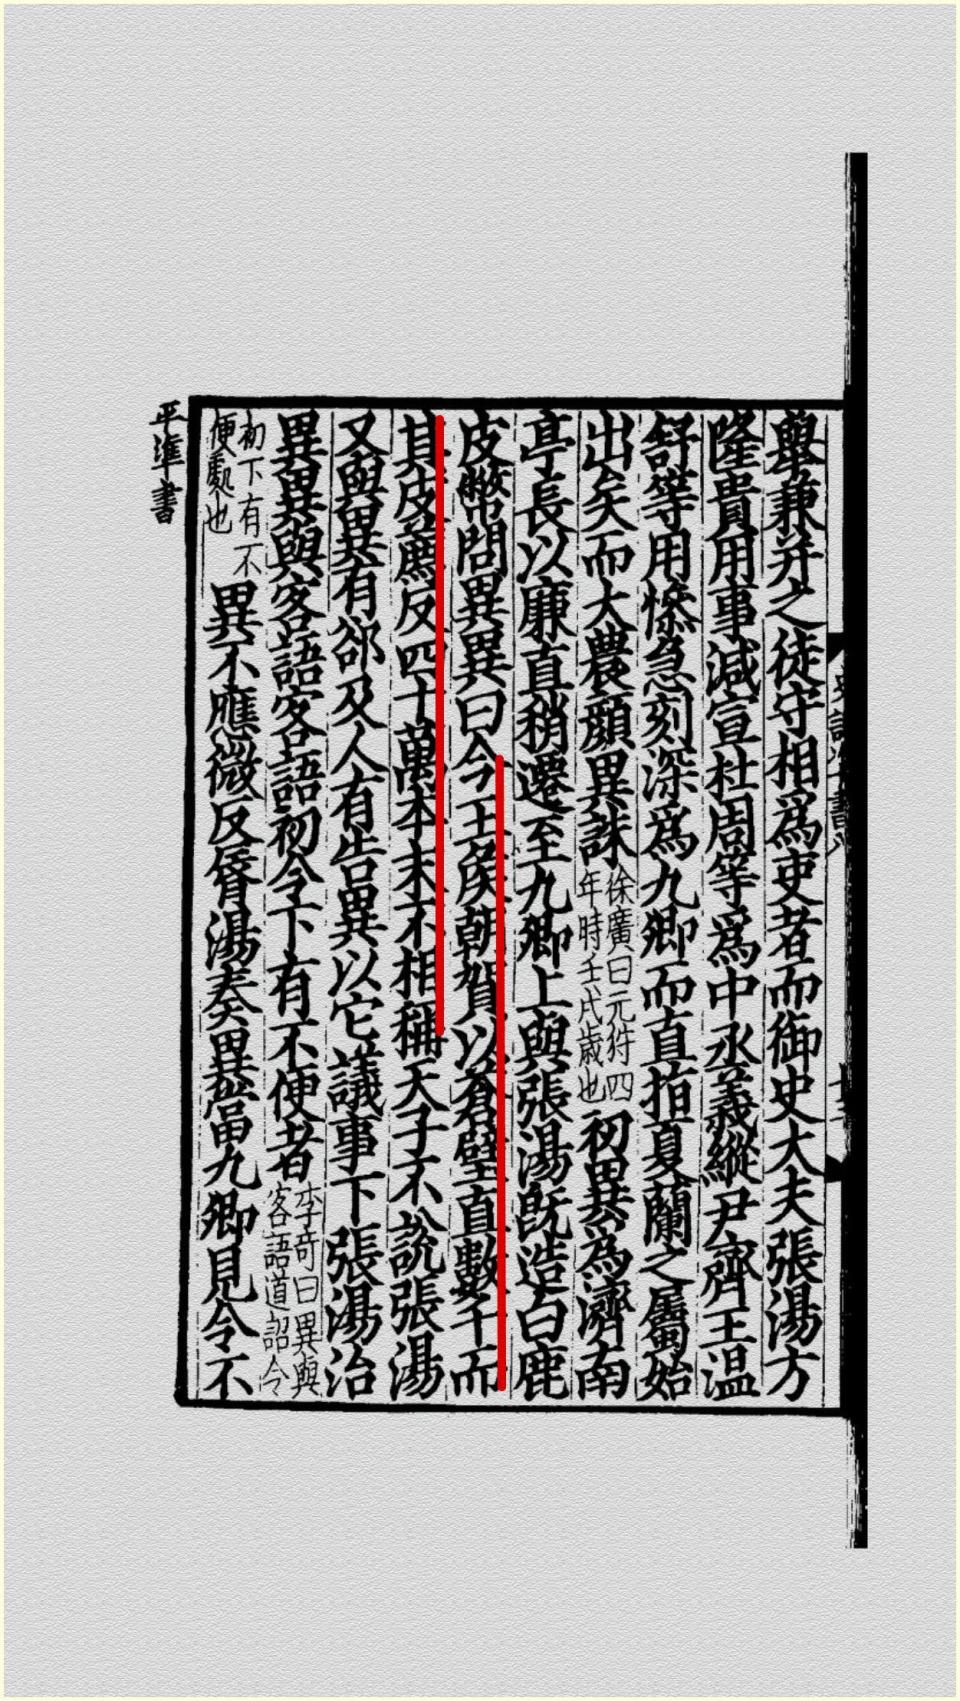 舉兼并之徒守相爲吏者而御史大夫張湯方
隆貴用事減宣杜周等爲中丞義縱尹齊王温
舒等用慘急刻深爲九卿而直指夏蘭之屬始
出矣而大農顔異誅徐廣曰元狩四年時壬戌歲也初異爲濟南
亭長以廉直稍遷至九卿上與張湯旣造白鹿
皮幣問異異曰今王侯朝賀以蒼璧直數千而
其皮薦反四十萬本末不相稱天子不說張湯
又與異有郤及人有告異以它議事下張湯治
異異與客語客語初令下有不便者李奇曰異與客語道詔令
初下有不便處也異不應微反脣湯奏異當九卿見令不
平準書